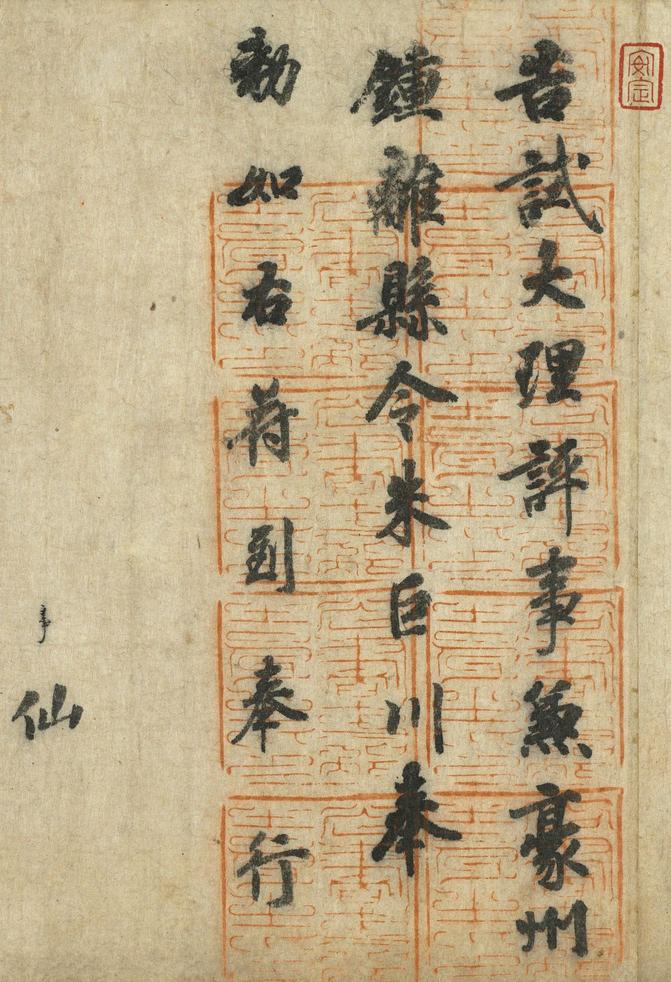 告試大理評事兼豪州
鍾離縣令朱巨川奉
勅如右符到奉行
仙